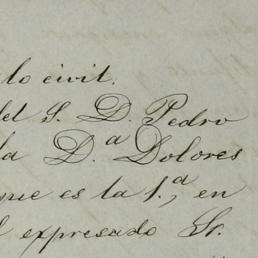 lo civil.
del S. D. Pedro
la D.ª Dolores
que es la 1.ª, en
el expresado Sr.